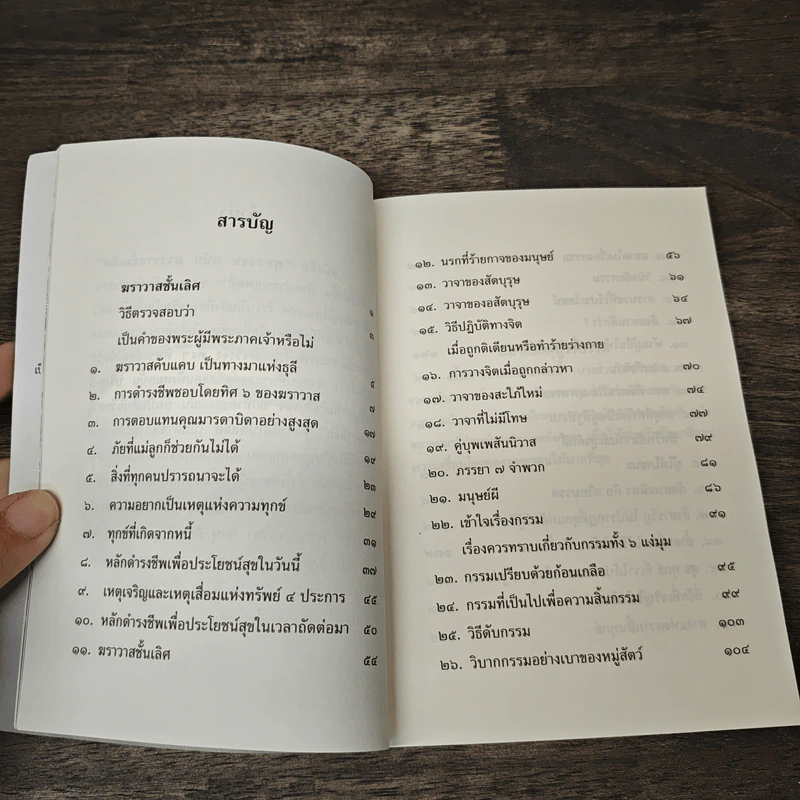 สารบัญ
ฆราวาสชั้นเลิศ
วิธีตรวจสอบว่า ๑
เป็นคำของพระผู้มีพระภาคเจ้าหรือไม่ ๓
๑. ฆราวาสคับแคบ เป็นทางมาแห่งธุลี ๕
๒. การดำรงชีพชอบโดยทิศ ๖ ของฆราวาส ๗
๓. การตอบแทนคุณมารดาบิดาอย่างสูงสุด ๑๗
๔. ภัยที่แม่ลูกก็ช่วยกันไม่ได้ ๑๙
๕. สิ่งที่ทุกคนปรารถนาจะได้ ๒๓
๖. ความอยากเป็นเหตุแห่งความทุกข์ ๒๙
๗. ทุกข์ที่เกิดจากหนี้ ๓๑
๘. หลักดำรงชีพเพื่อประโยชน์สุขในวันนี้ ๓๗
๙. เหตุเจริญและเหตุเสื่อมแห่งทรัพย์ ๔ ประการ ๔๕
๑๐. หลักดำรงชีพเพื่อประโยชน์สุขในเวลาถัดต่อมา ๕๐
๑๑. ฆราวาสชั้นเลิศ ๕๔
๑๒. นรกที่ร้ายกาจของมนุษย์ ๕๖
๑๓. วาจาของสัตบุรุษ ๖๑
๑๔. วาจาของอสัตบุรุษ ๖๔
๑๕. วิธีปฏิบัติทางจิต ๖๗
เมื่อถูกติเตียนหรือทำร้ายร่างกาย
๑๖. การวางจิตเมื่อถูกกล่าวหา ๗๐
๑๗. วาจาของสะใภ้ใหม่ ๗๔
๑๘. วาจาที่ไม่มีโทษ ๗๗
๑๙. คู่บุพเพสันนิวาส ๗๙
๒๐. ภรรยา ๗ จำพวก ๘๑
๒๑. มนุษย์ผี ๘๖
๒๒. เข้าใจเรื่องกรรม ๙๑
เรื่องควรทราบเกี่ยวกับกรรมทั้ง ๖ แง่มุม
๒๓. กรรมเปรียบด้วยก้อนเกลือ ๙๕
๒๔. กรรมที่เป็นไปเพื่อความสิ้นกรรม ๙๙
๒๕. วิธีดับกรรม ๑๐๓
๒๖. วิบากกรรมอย่างเบาของหมู่สัตว์ ๑๐๔